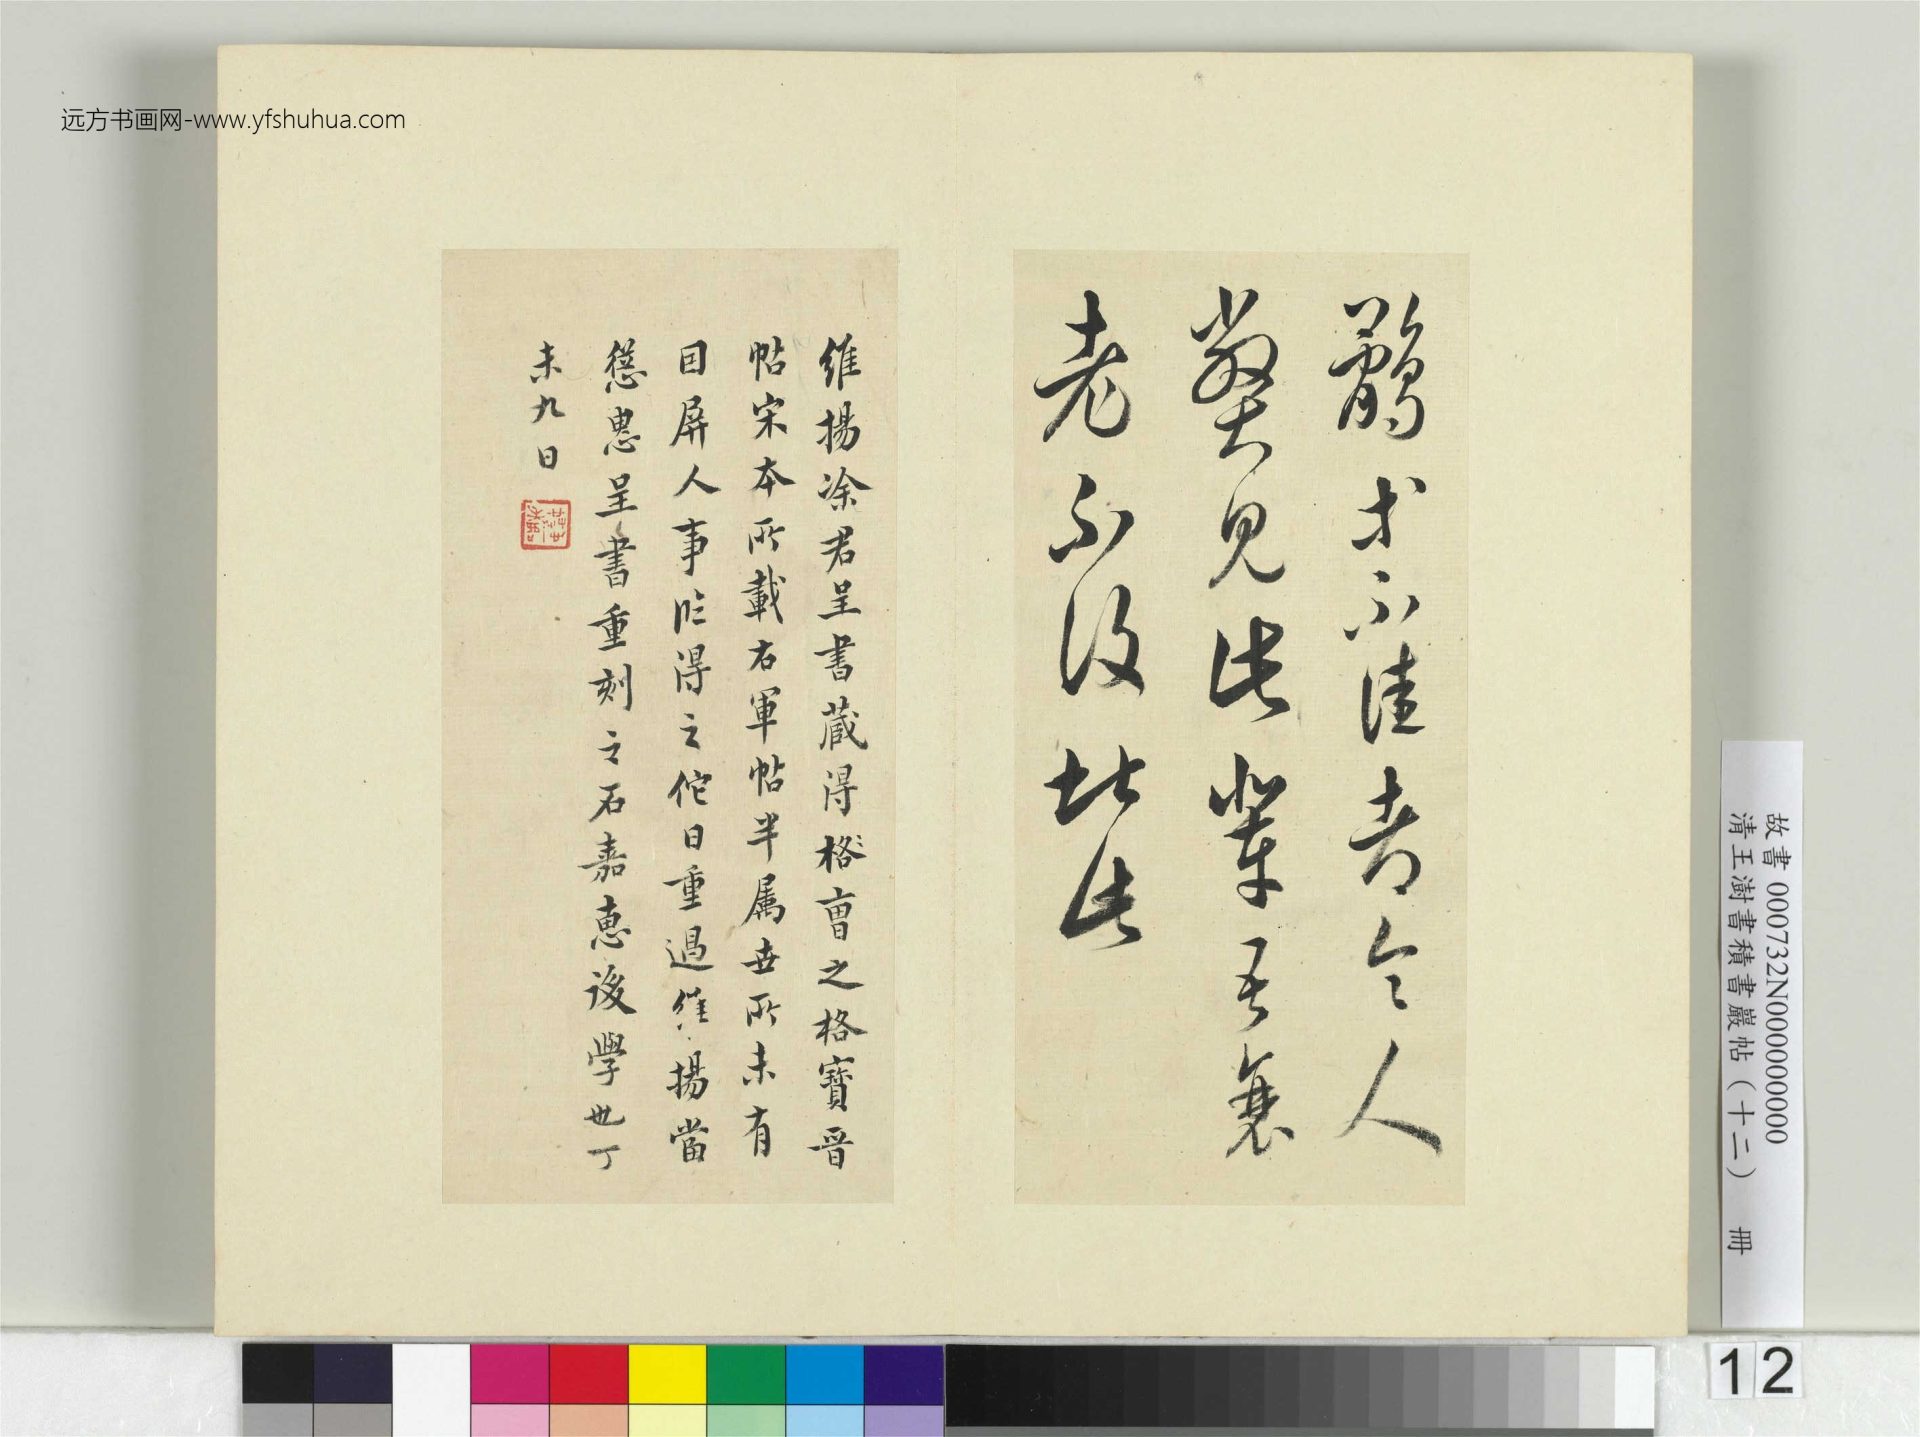 远方书画网-www.yfshuhua.com
才不佳者令人
弊見此輩吾衰
老不復堪此
維揚涂君呈書藏得格曹之格寶晉
帖宋本所載右軍帖半属世所未有
因屏人事臨得之佗日重過維揚當
慫恿呈書重刻之石嘉惠後學也丁
未九日
故書 000732N000000000
清王澍書積書巖帖(十二) 冊
12